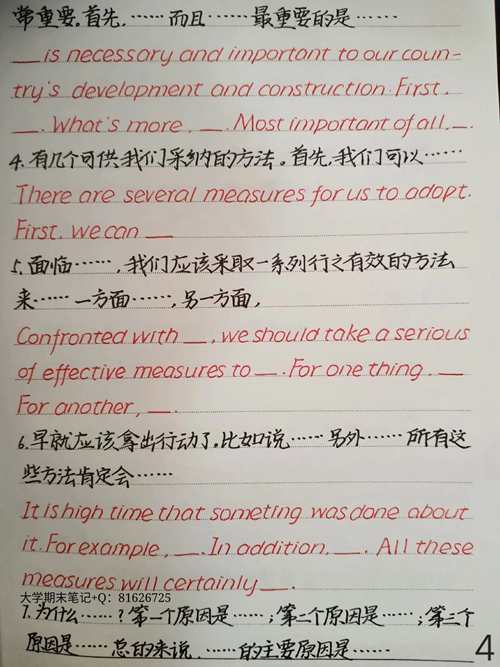 常重要。首先,……而且……最重要的是……
__ is necessary and important to our coun-
try's development and construction. First,
__. What's more, __. Most important of all, __.
4.有几个可供我们采纳的方法。首先,我们可以……
There are several measures for us to adopt.
First, we can __
5.面临……,我们应该采取一系列行之有效的方法
来……一方面……,另一方面,
Confronted with __, we should take a serious
of effective measures to __. For one thing, __
For another, __.
6.早就应该拿出行动了。比如说……另外……所有这
些方法肯定会……
It is high time that someting was done about
it. For example, __. In addition, __. All these
measures will certainly __.
大学期末笔记+Q：81626725
7.为什么……?第一个原因是……;第二个原因是……;第三个
原因是……总的来说,……的主要原因是……
4